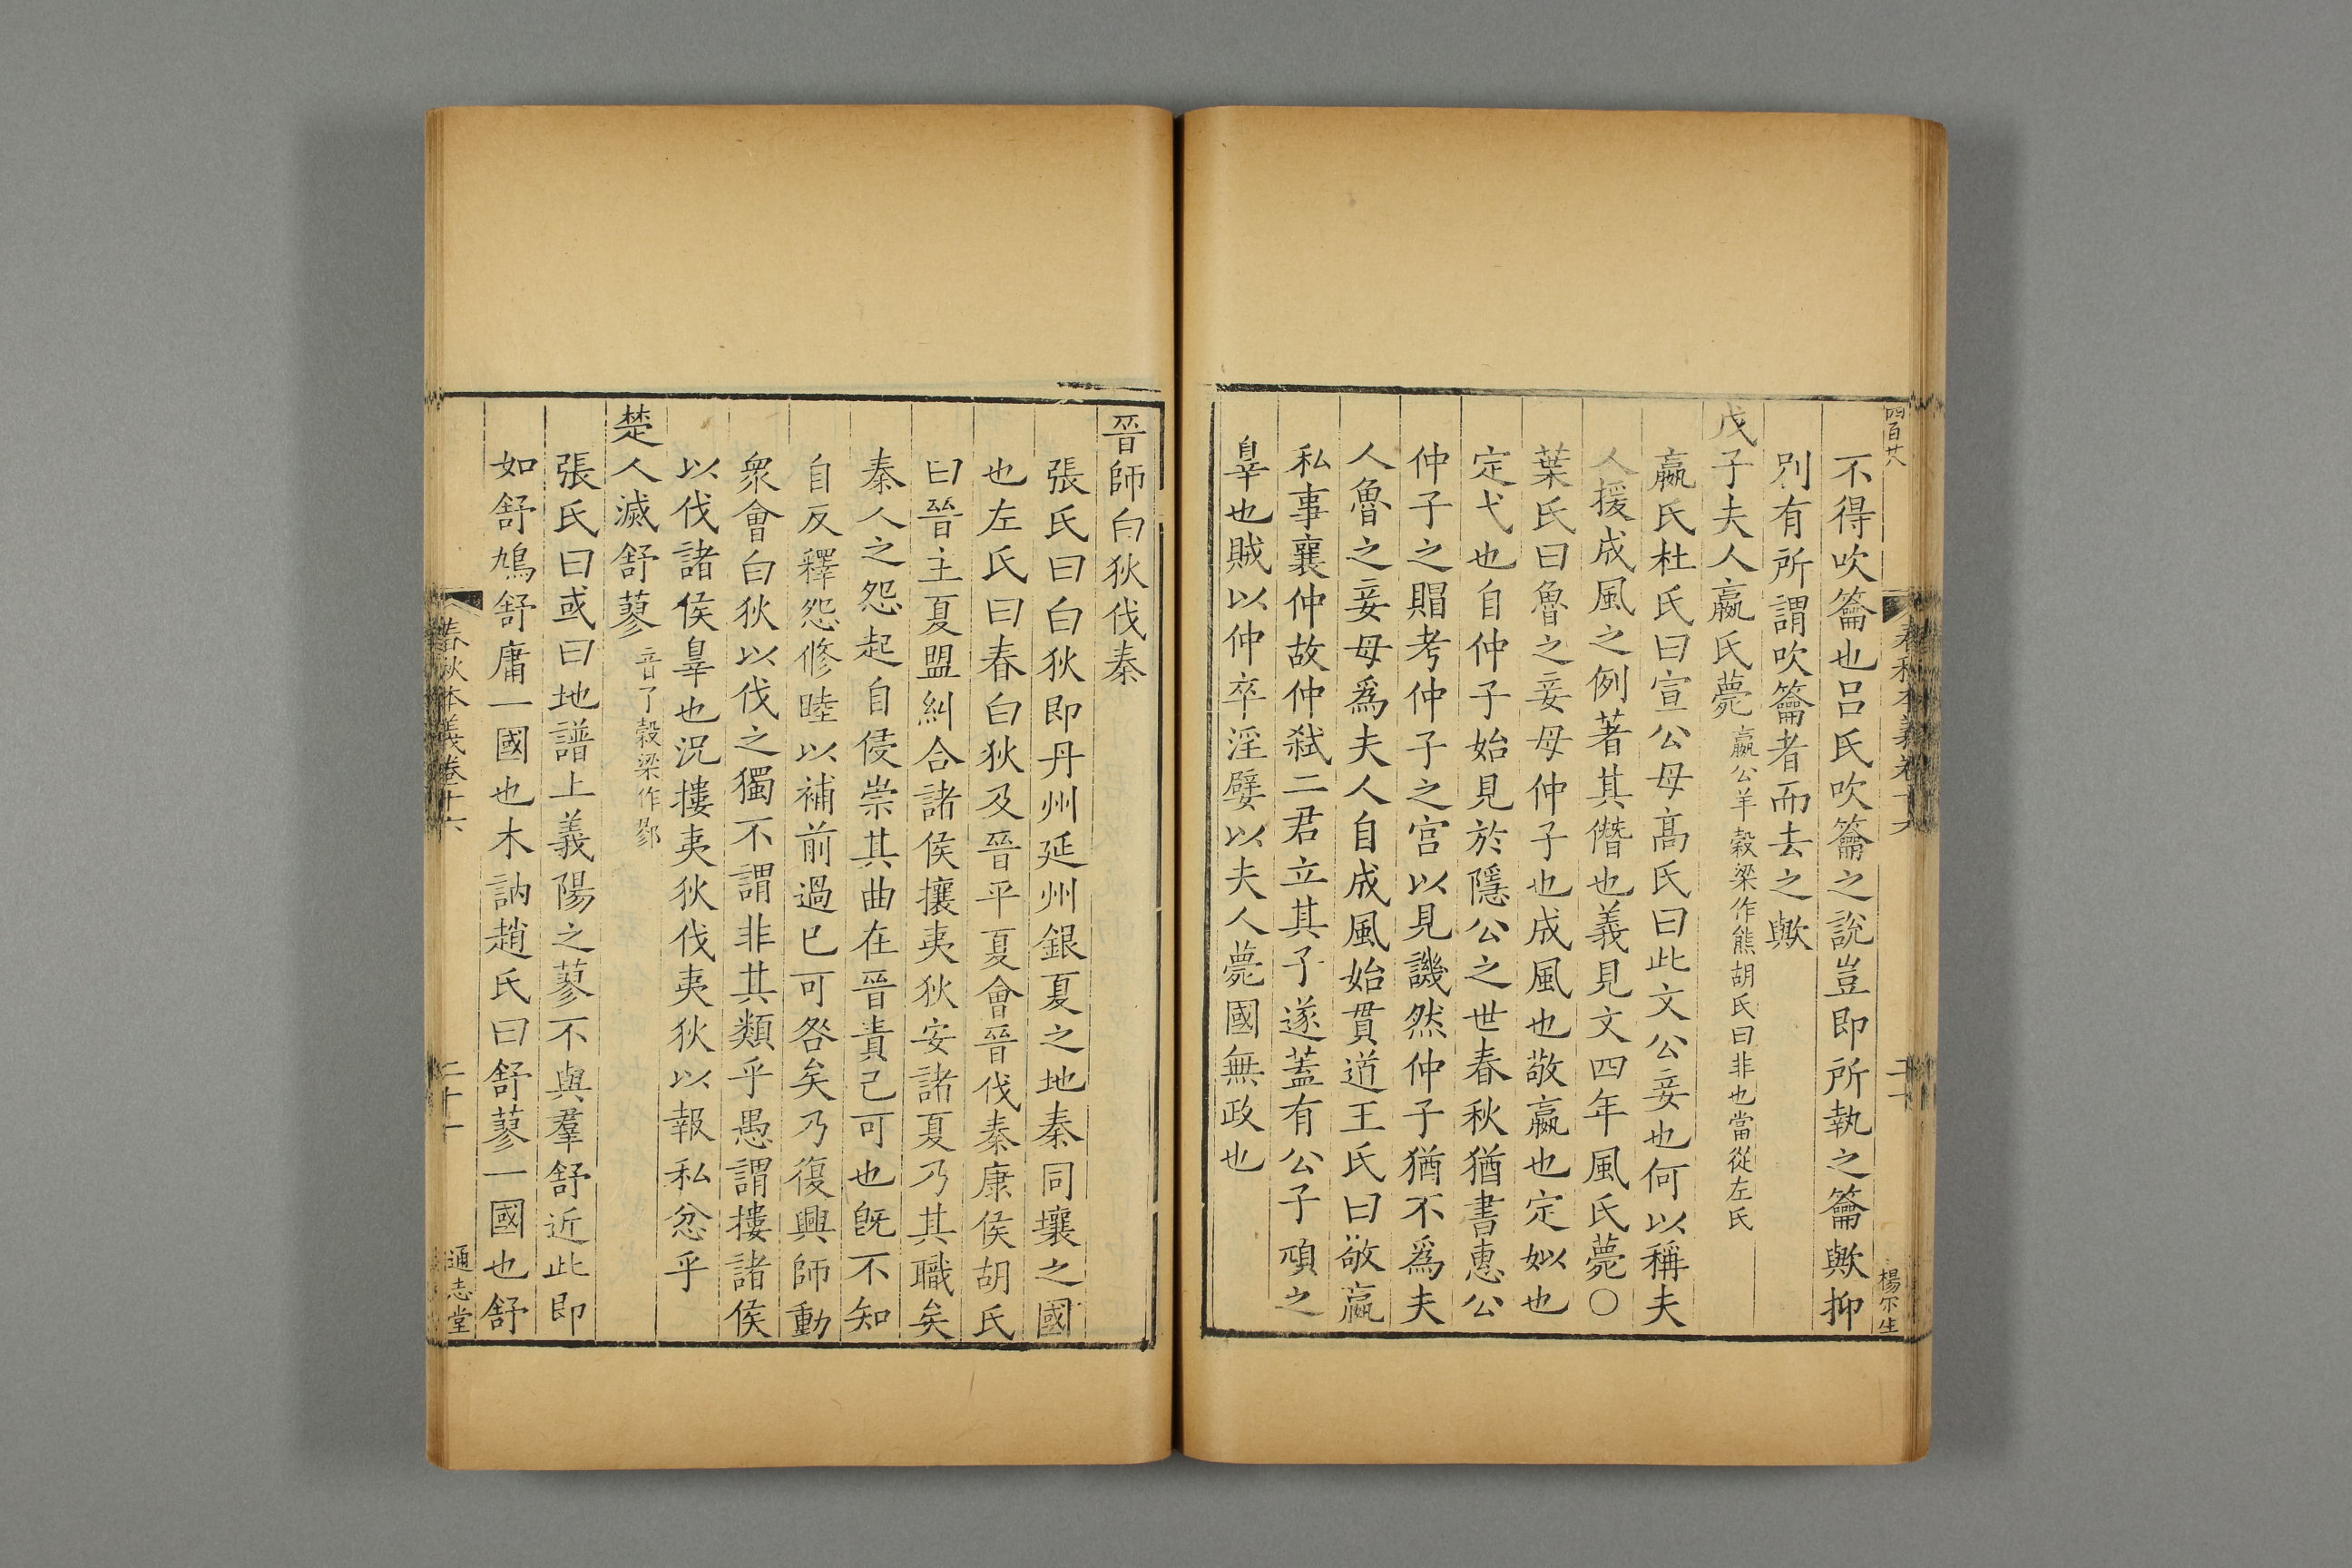 四百廿八
春秋本義卷十六
二十
楊尔生
不得吹籥也吕氏吹籥之說豈即所執之籥歟抑
別有所謂吹籥者而去之歟
戊子夫人嬴氏薨嬴公羊穀梁作熊胡氏曰非也當從左氏
嬴氏杜氏曰宣公母高氏曰此文公妾也何以稱夫
人援成風之例著其僭也義見文四年風氏薨〇
葉氏曰魯之妾母仲子也成風也敬嬴也定姒也
定弋也自仲子始見於隱公之世春秋猶書惠公
仲子之賵考仲子之宫以見譏然仲子猶不爲夫
人魯之妾母爲夫人自成風始貫道王氏曰敬嬴
私事襄仲故仲弒二君立其子遂蓋有公子頑之
辠也賊以仲卒淫嬖以夫人薨國無政也
晉師白狄伐秦
張氏曰白狄即丹州延州銀夏之地秦同壤之國
也左氏曰春白狄及晉平夏會晉伐秦康侯胡氏
曰晉主夏盟糾合諸侯攘夷狄安諸夏乃其職矣
秦人之怨起自侵崇其曲在晉責己可也旣不知
自反釋怨修睦以補前過已可咎矣乃復興師動
衆會白狄以伐之獨不謂非其類乎愚謂摟諸侯
以伐諸侯辠也況摟夷狄伐夷狄以報私忿乎
楚人滅舒蓼音了穀梁作鄝
張氏曰或曰地譜上義陽之蓼不與羣舒近此即
如舒鳩舒庸一國也木訥趙氏曰舒蓼一國也舒
春秋本義卷十六
二十一
通志堂